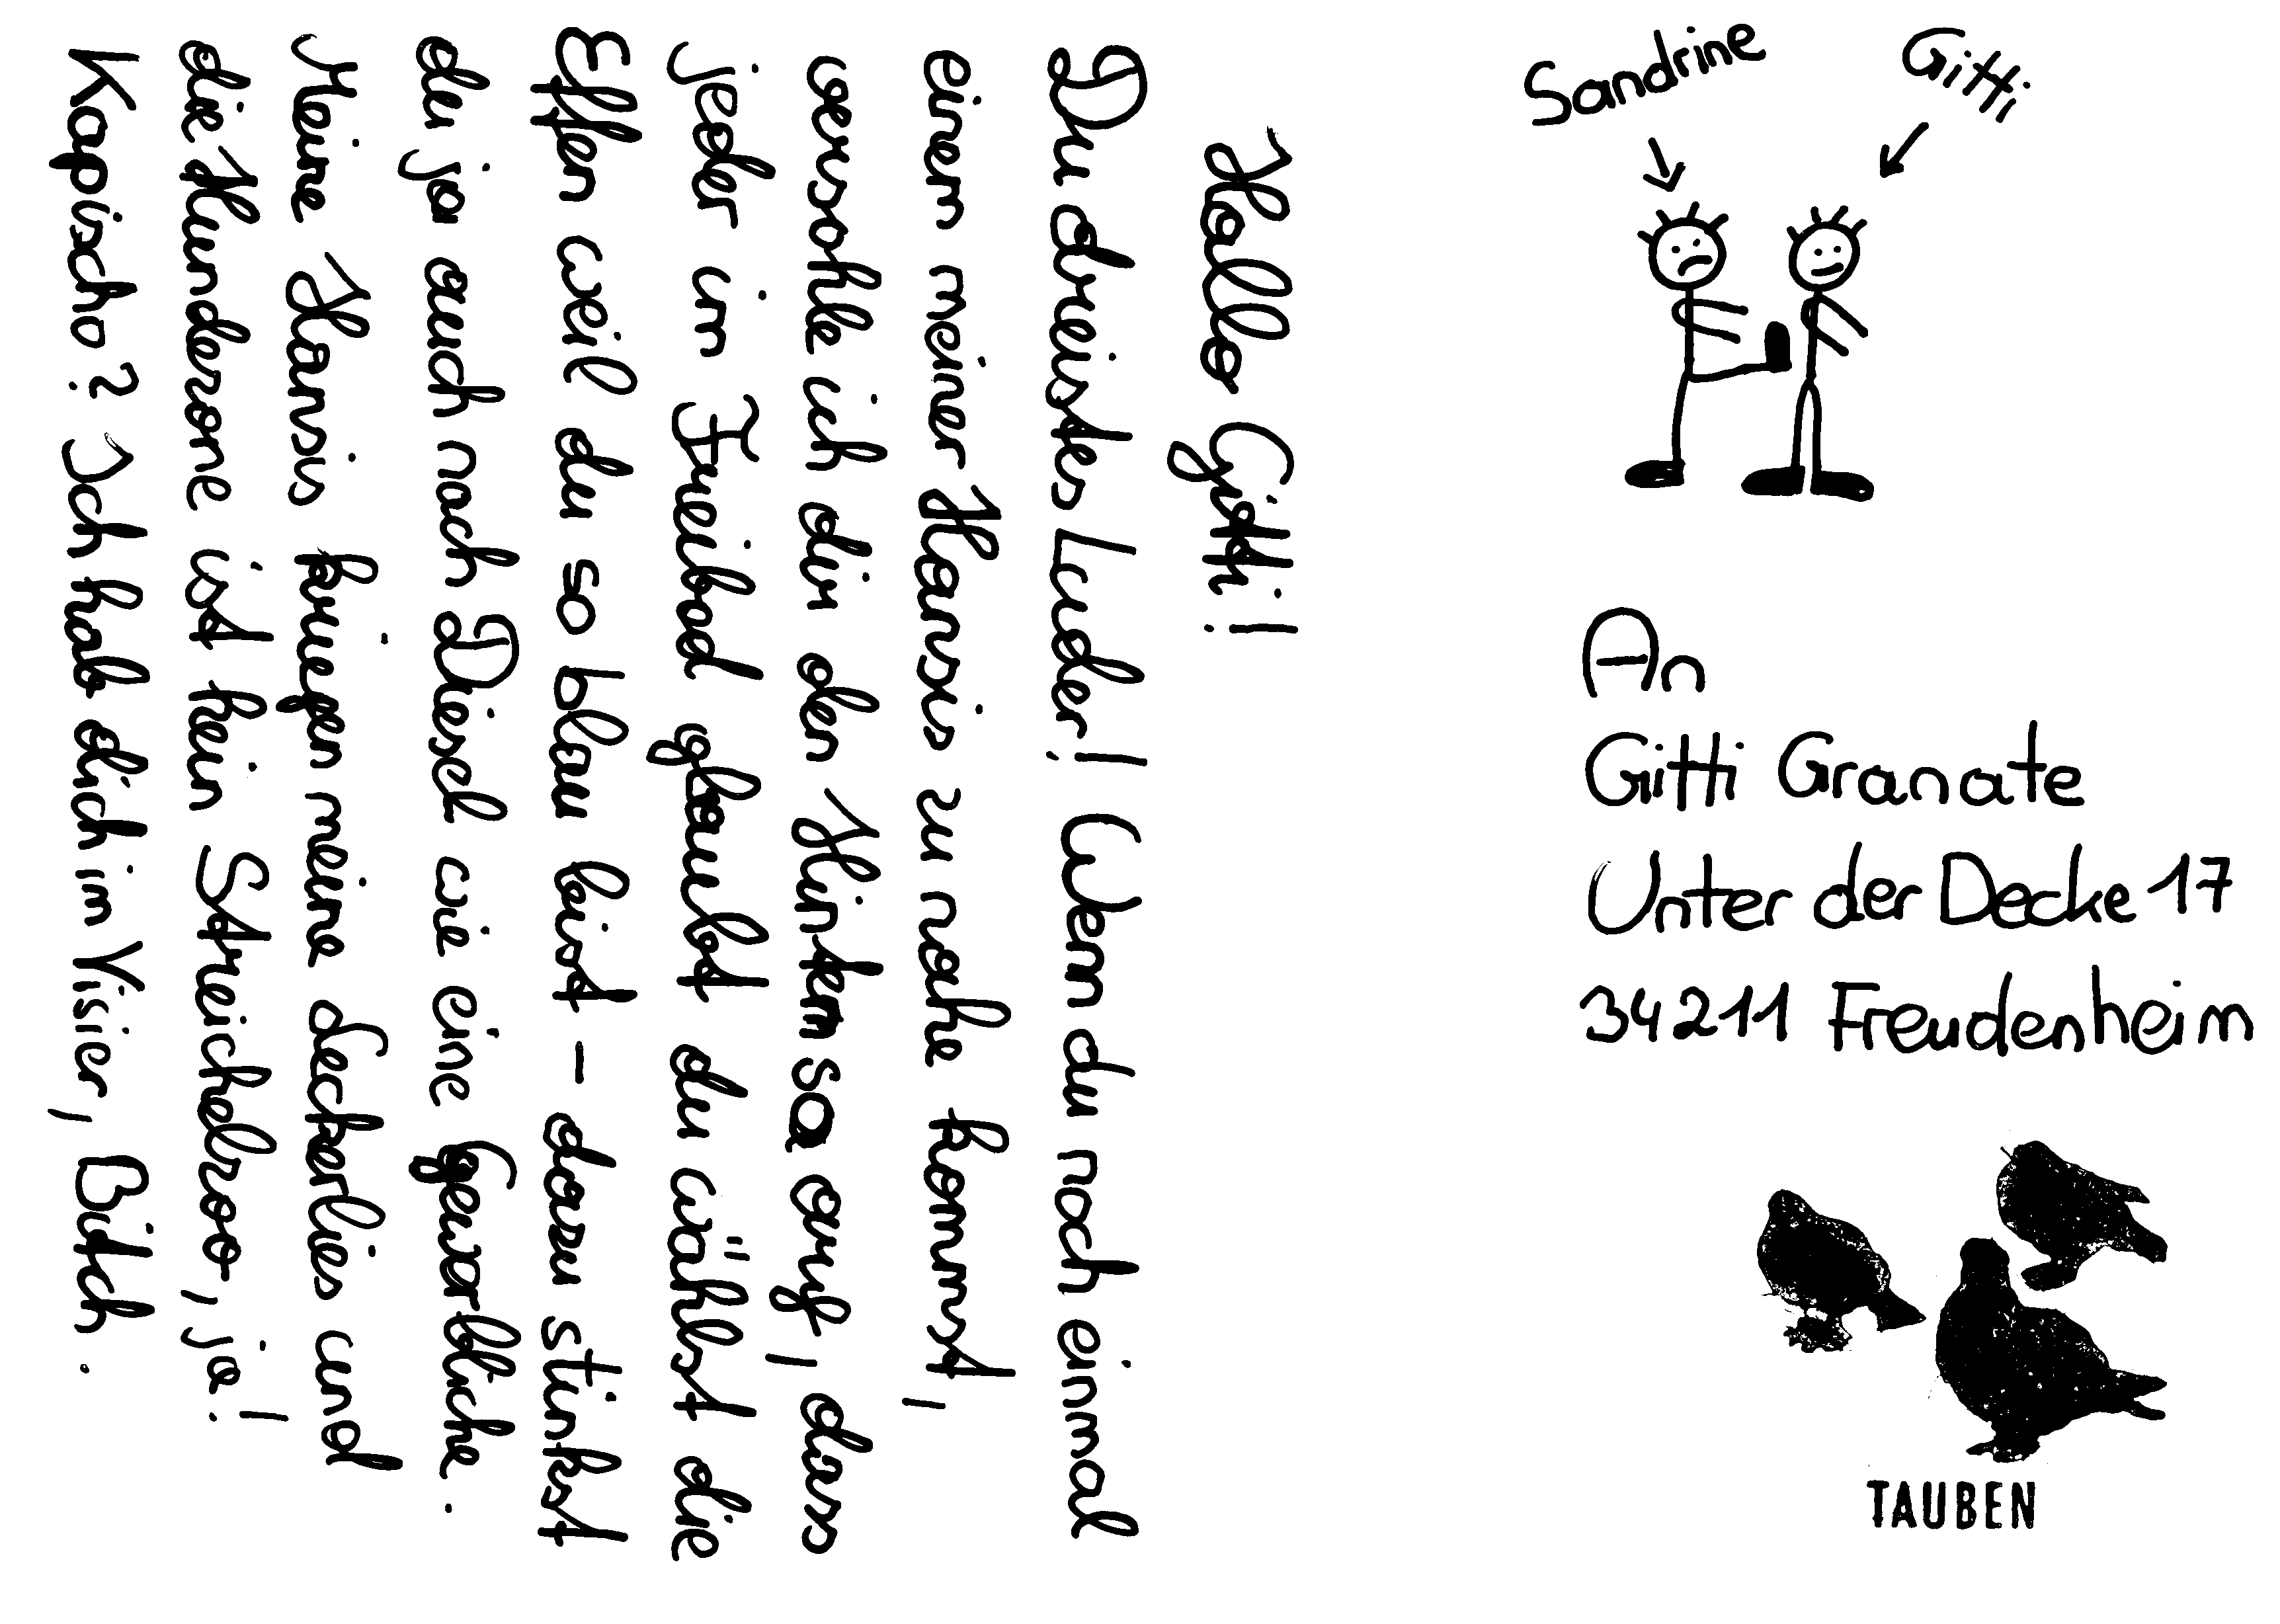 Hallo Gitti!
Du dreistes Luder! Wenn du noch einmal
einem meiner Hansis zu nahe kommst,
versohle ich dir den Hintern so auf, dass
jeder im Freibad glaubst du wählst die
Effen weil du so blau bist - dazu stinkst
du ja auch nach Diesel wie eine Gewerbliche.
Meine Hansis kriegen meine deckerlies und
die Hunderone ist kein Streichelzoo, ja!
Kapischo? Ich hab dich im Visier, Bitch.
Sandrine
Gitti
An
Gitti Granate
Unter der Decke 17
34211 Freudenheim
TAUBEN